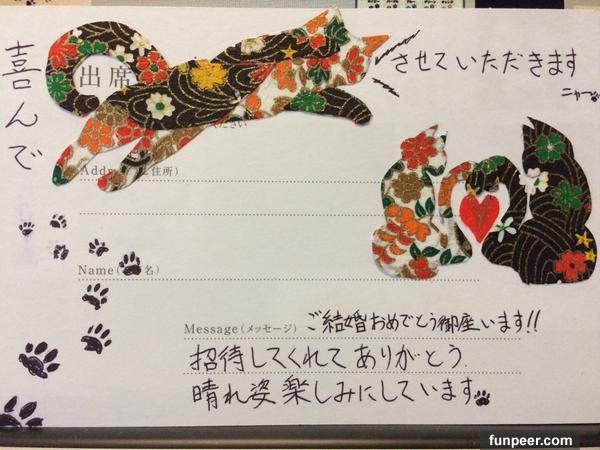 喜んで
出席
させていただきます
ニャー
ださい
Addr
住所)
Name(
名)
Message(メッセージ)
ご結婚おめでとう御座います!!
招待してくれてありがとう
晴れ姿楽しみにしています
funpeer.com